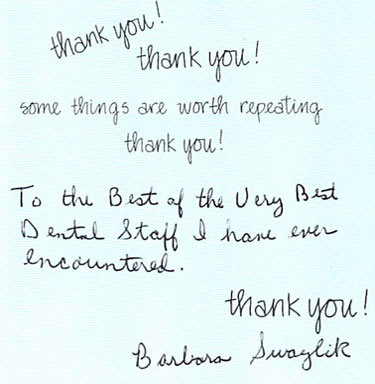 thank you!
thank you!
some things are worth repeating
thank you!
To the Best of the Very Best
Dental Staff I have ever
encountered.
thank you!
Barbara Swaglik